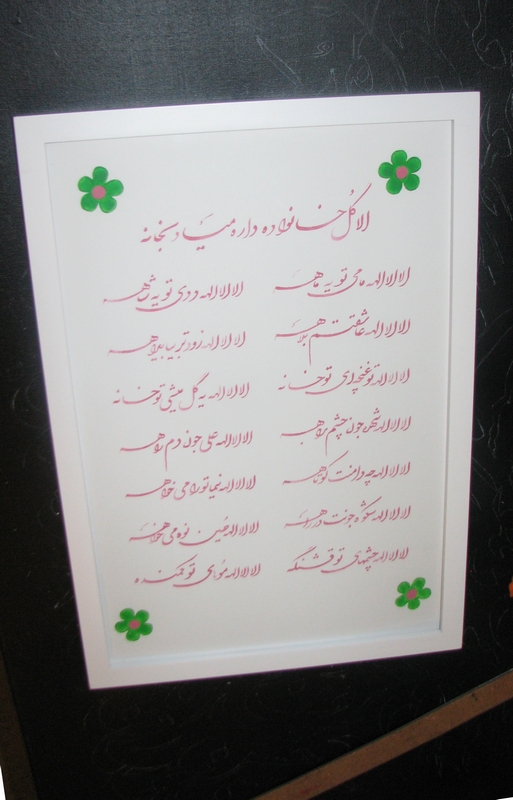 الا گُل خانواده داره میاد بخانه
لالالالاله می تو یه ماهه لالالالاله دردی تو یه شاهه
لالالالاله عاشقتم بلاهه لالالالاله زود تر بیا
لالالالاله تو غنچه ای تو خانه لالالالاله یه گل میشی تو خانه
لالالالاله شهین جون چشم براهه لالالالاله علی جون دم راهه
لالالالاله چه دامنت کوتاهه لالالالاله نیما تو را می خواهه
لالالالاله شکوه جونت در راهه لالالالاله حسین نوه می خواهه
لالالالاله چشمهای تو قشنگه لالالالاله موی تو کمنده